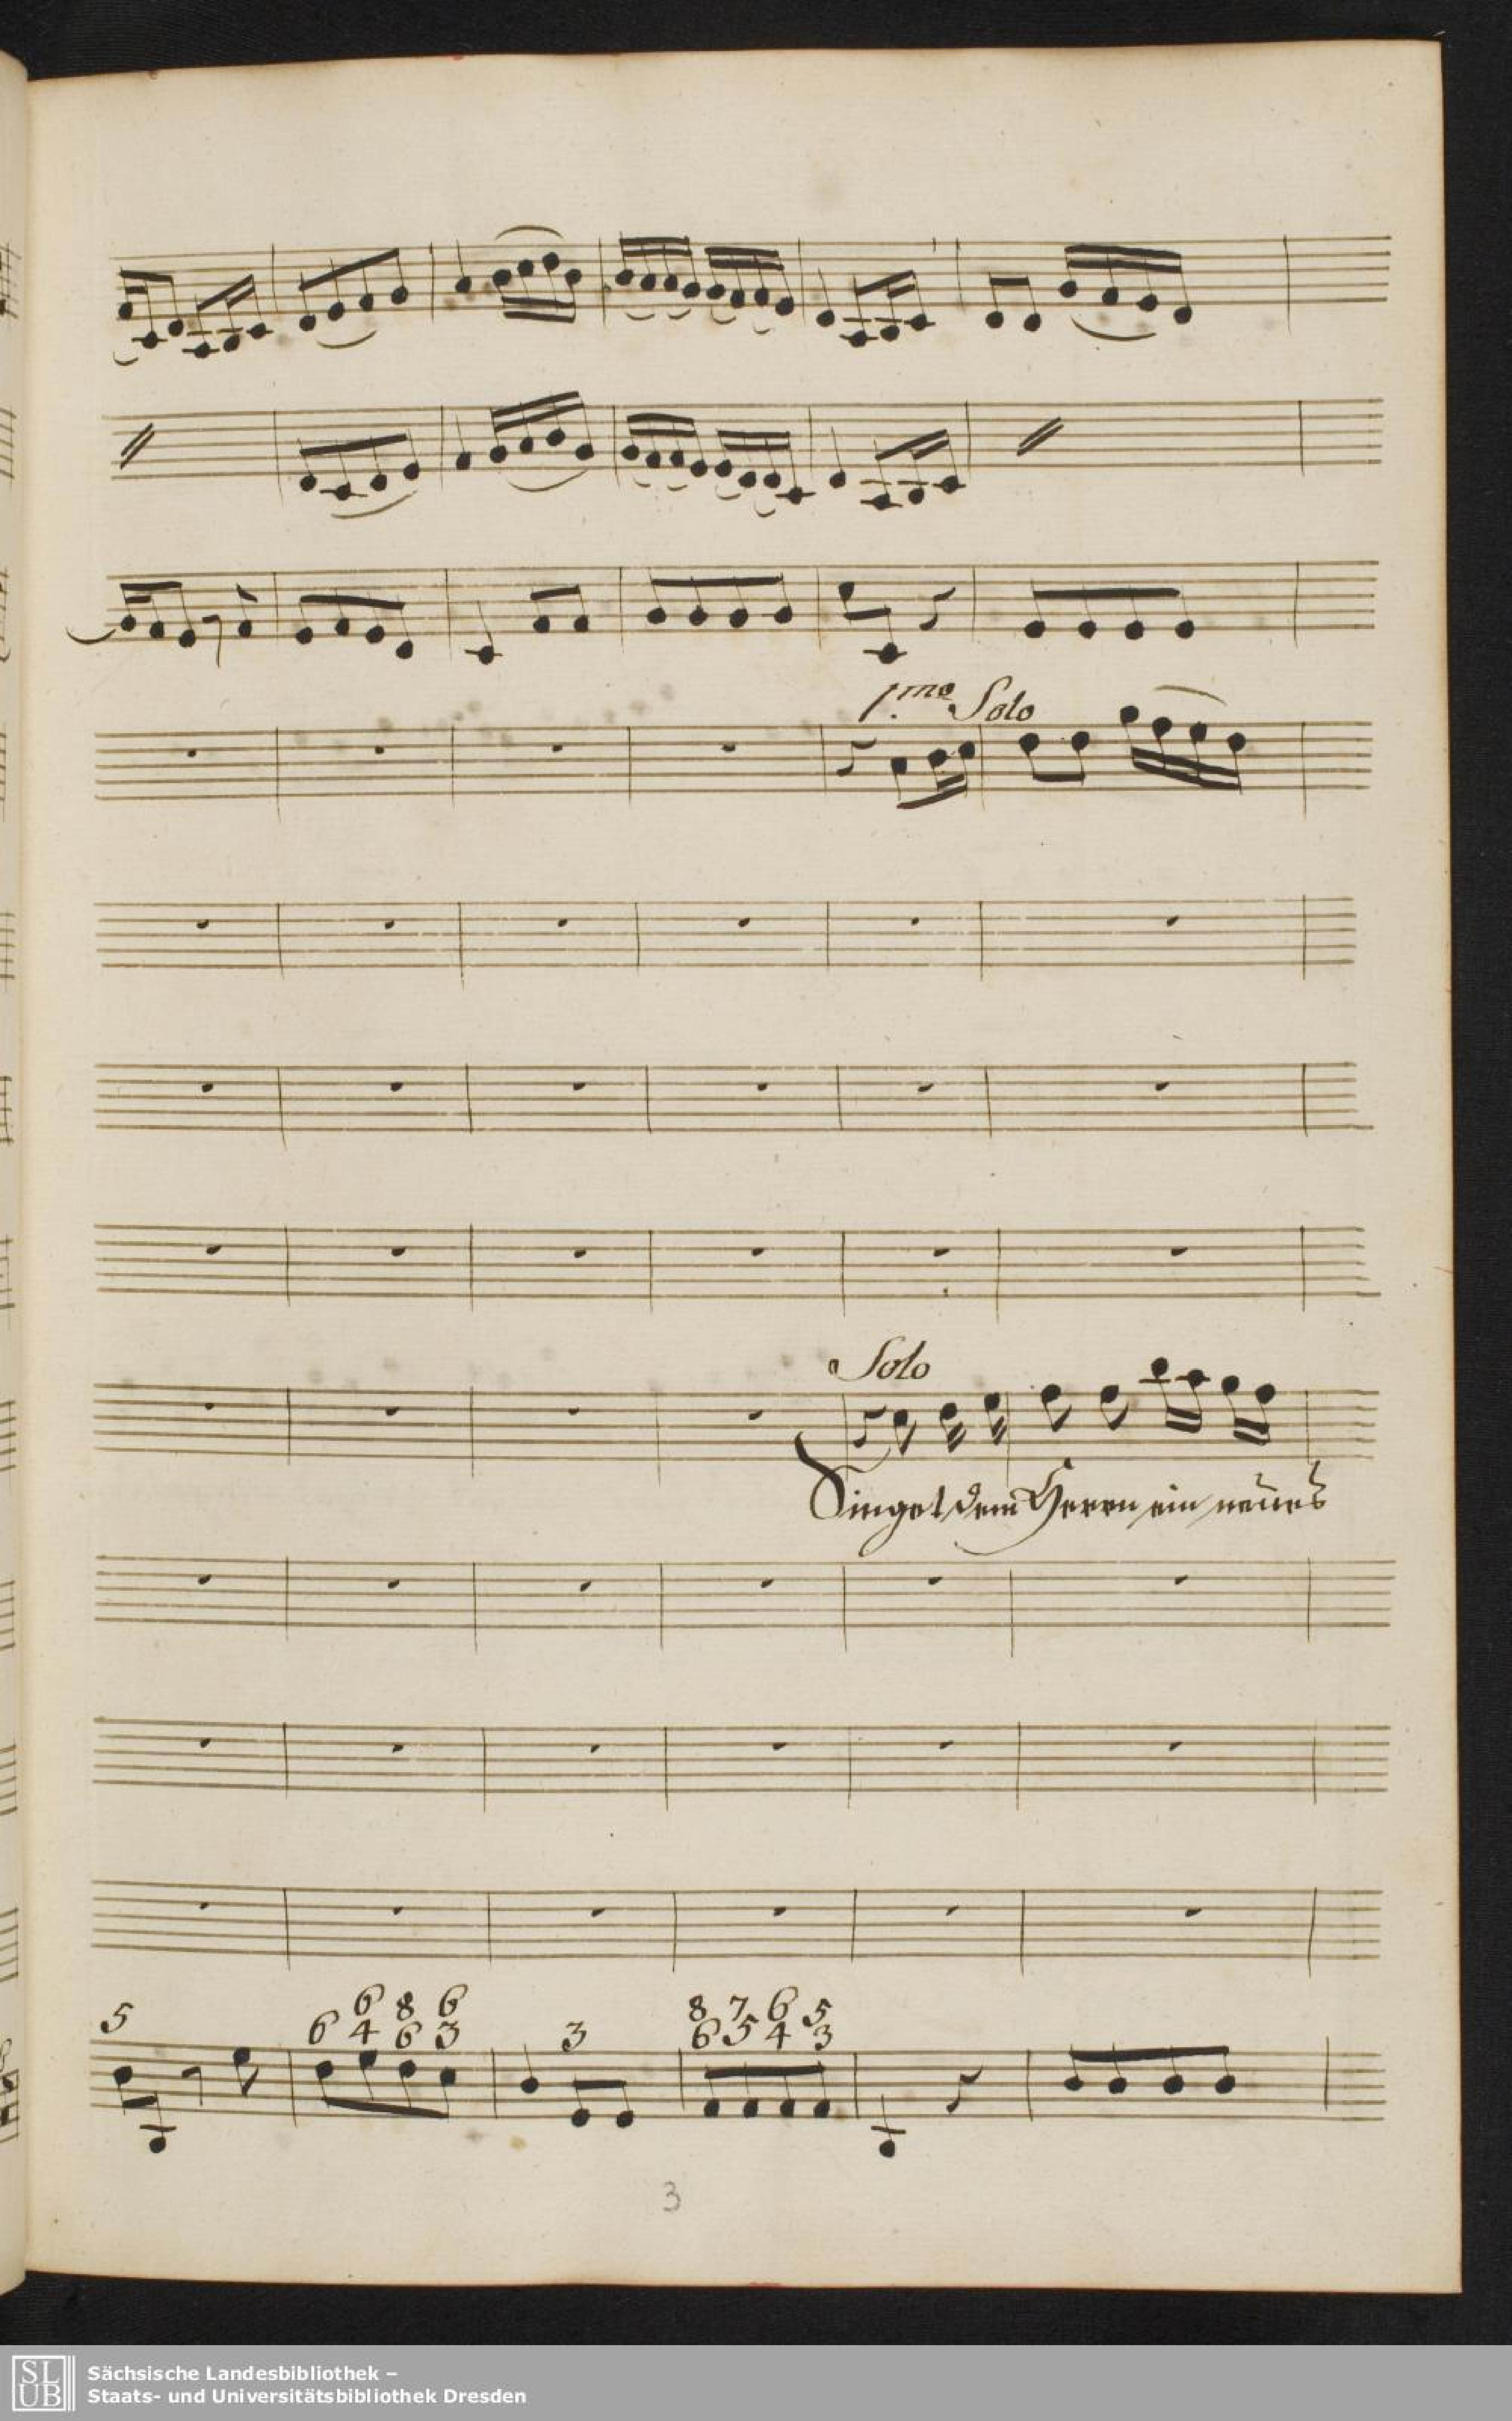 1.mo Solo
Solo
Singet dem Herrn ein neues
5 6 6 8 6 3 8 7 6 5
4 6 3 6 5 4 3
3
SLUB
Sächsische Landesbibliothek –
Staats- und Universitätsbibliothek Dresden